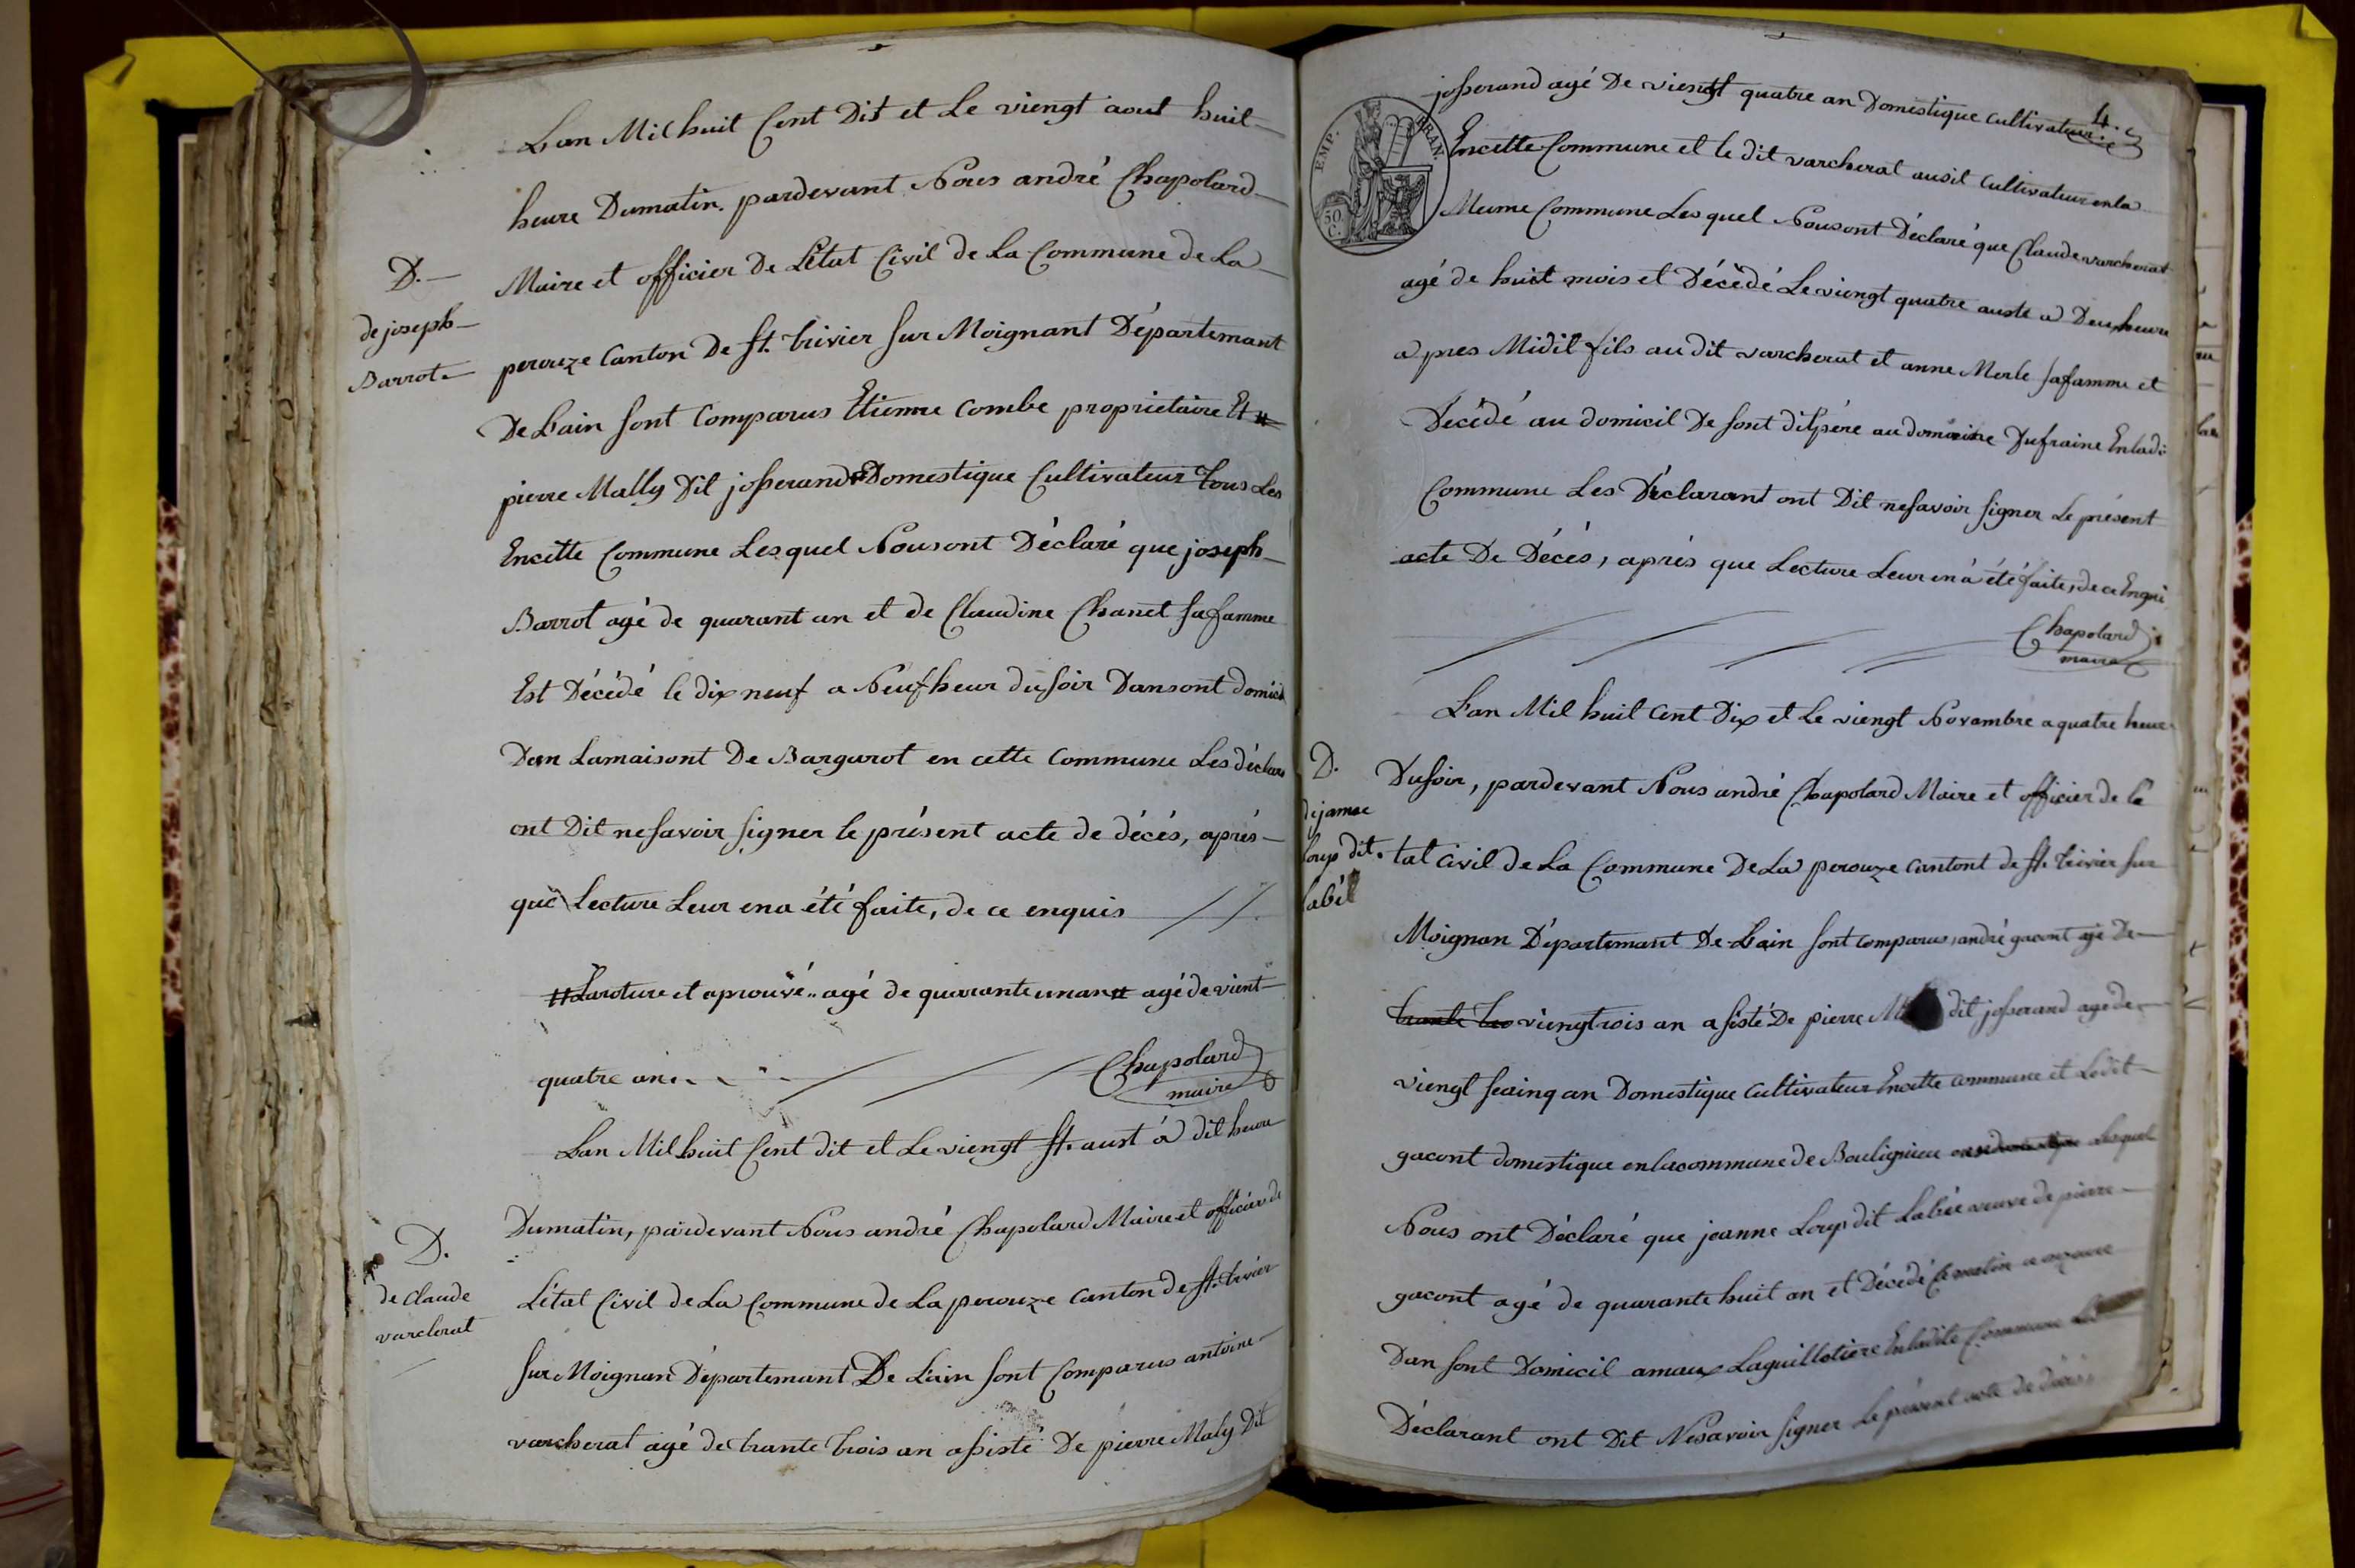 Lan Mil huit Cent Dit et Le viengt aout huit
heure Dumatin pardevant Nous andré Chapolard
Maire et officier De Létat Civil de La Commune de La
D.
de joseph
Barrot
perouze Canton De St. trivier Sur Moignant Départemant
De Lain Sont Comparus Etienne Combe propriétaire Et #
pierre Mally Dit josserand Domestique Cultivateur tous Les
Encette Commune Lesquel Nousont Déclaré que joseph
Barrot agé de quarant an et de Claudine Chanet safamme
Est Décédé le dix neuf a Neufheur dusoir Dansont domicil
Dan Lamaisont De Bargarot en cette Commune Les déclara
ont Dit nesavoir signer le présent acte de décés, aprés
que Lecture Leur ena été faite, de ce enquis
# Laroture et aprouvé .. agé de quaranteunan # agé de vient
quatre an
Chapolard
maire
Lan Mil huit Cent dit et Le viengt St. aust à dit heure
Dumatin, pardevant Nous andré Chapolard Maire et officier de
D.
de Claude
varcherat
Létat Civil de La Commune de La perouze Canton de St. trivier
Sur Moignan Départemant De Lain Sont Comparus antoine
varcherat agé de trante trois an assisté De pierre Maly Dit
4.
josserand agé De viengt quatre an Domestique Cultivateur
EMP. FRAN.
50 C.
Encette Commune et le dit varcherat ausit Cultivateur enla
Meme Commune Lesquel Nousont Déclaré que Claude varcherat
agé de huit mois et Décédé Le viengt quatre auste a Deux heure
a pres Midit fils au dit varcherat et anne Merle safamme et
Décédé au domicil De sont ditpére au domaine Dufraine Enladi
Commune Les Déclarant ont Dit nesavoir signer Le présent
acte De Décés, aprés que Lecture Leur en à été faite, de ce Enqui
Chapolard
maire
Lan Mil huit Cent Dix et Le viengt Novambre a quatre heur
D.
de janne
Loup dit
Labét
Dusoir, pardevant Nous andré Chapolard Maire et officier de Lé
tat Civil de La Commune De La perouze Cantont de St. trivier sur
Moignan Départemant De Lain Sont Comparus, andré gacont agé De
trante tro viengtrois an asisté De pierre dit josserand agé de
viengt seainq an Domestique Cultivateur Encette Commune et Ledit
gacont domestique enlacommune de Bouligneu Lesquel
Nous ont Déclaré que jeanne Loup dit Labée veuve de pierre
gacont agé de quarante huit an et Décédé Ce matin a
Dan sont Domicil amaux Laguillotiere Enladite Commune Les
Déclarant ont Dit Nesavoir Signer Le présent acte de décés,